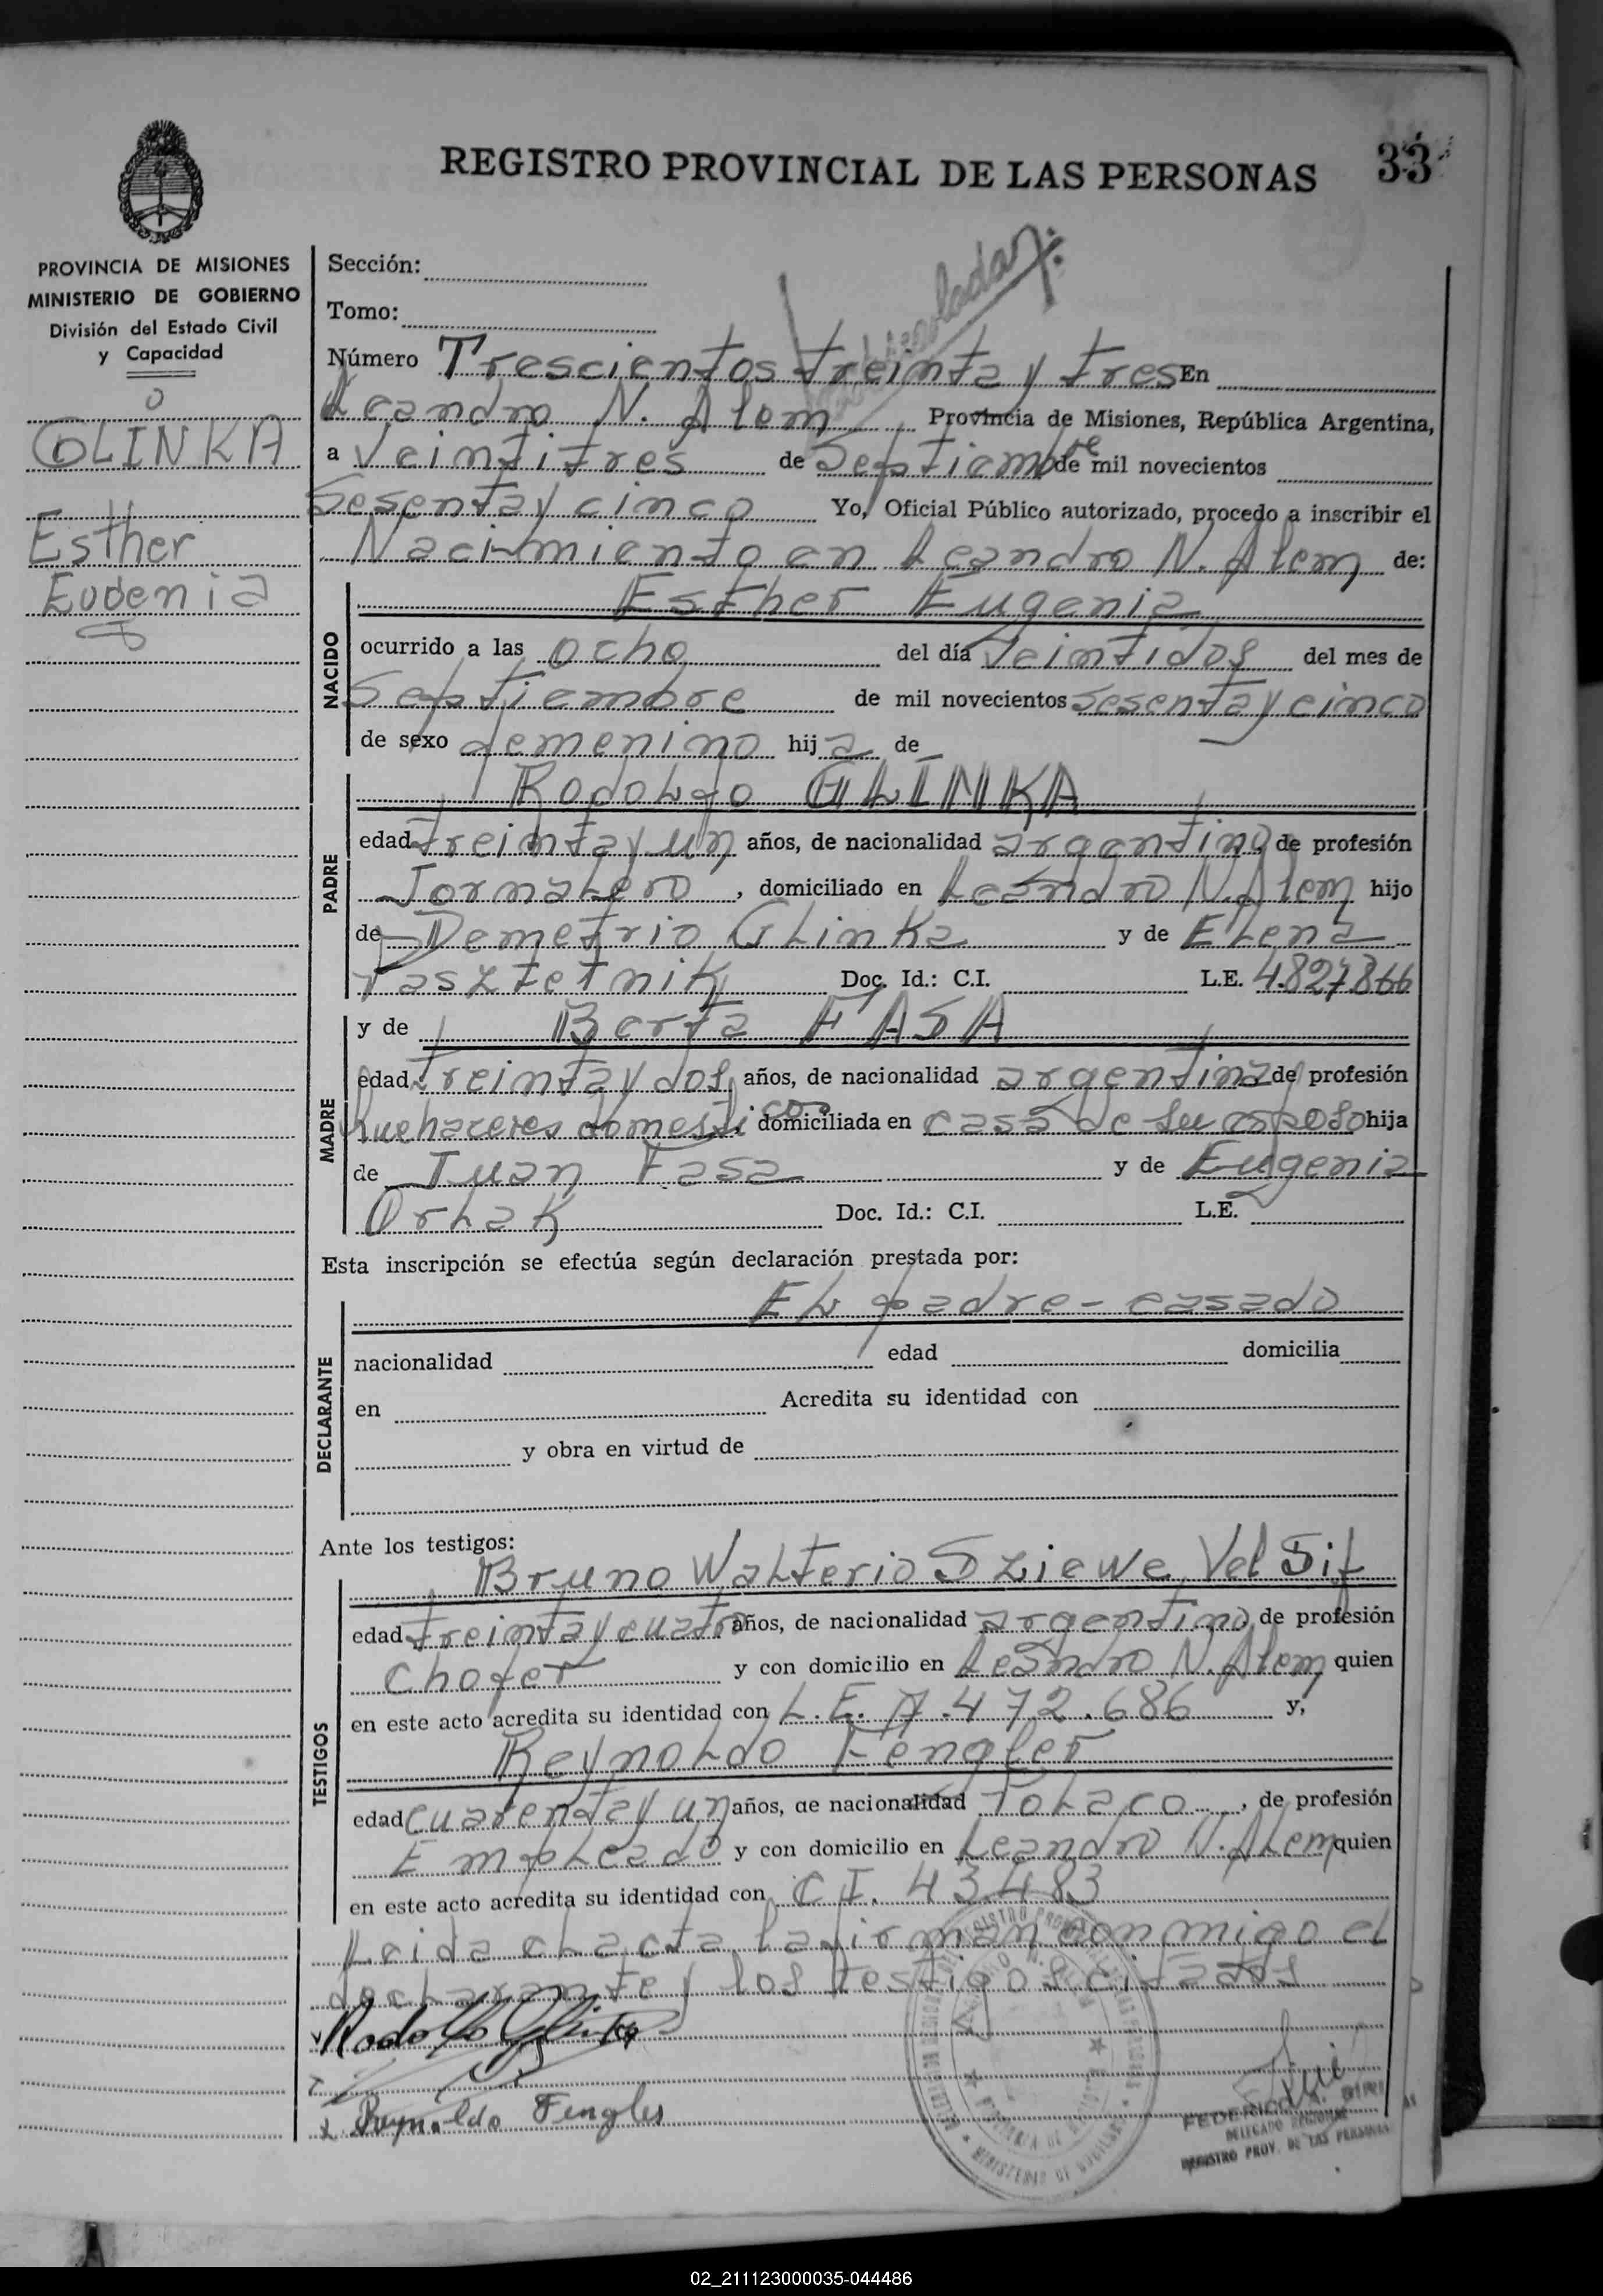 REGISTRO PROVINCIAL DE LAS PERSONAS 33
PROVINCIA DE MISIONES
MINISTERIO DE GOBIERNO
División del Estado Civil
y Capacidad
GLINKA
Esther
Eugenia
Sección:
Tomo:
Número Trescientos treinta y tres En
Leandro N. Alem Provincia de Misiones, República Argentina,
a Veintitres de Septiembre de mil novecientos
Sesenta y cinco Yo, Oficial Público autorizado, procedo a inscribir el
Nacimiento en Leandro N. Alem de:
NACIDO
Esther Eugenia
ocurrido a las ocho del día Veintidos del mes de
Septiembre de mil novecientos sesenta y cinco
de sexo femenino hija de
PADRE
Rodolfo GLINKA
edad treinta y un años, de nacionalidad argentino, de profesión
Jornalero, domiciliado en Leandro N. Alem hijo
de Demetrio Glinka y de Elena
Pasztetnik Doc. Id.: C.I. L.E. 4.827.866
MADRE
y de Berta FASA
edad treinta y dos, años, de nacionalidad argentina de profesión
Quehaceres domesticos, domiciliada en casa de su esposo hija
de Juan Fasa y de Eugenia
Orlak Doc. Id.: C.I. L.E.
Esta inscripción se efectúa según declaración prestada por:
DECLARANTE
El padre - casado
nacionalidad edad domicilia
en Acredita su identidad con
y obra en virtud de
Ante los testigos:
TESTIGOS
Bruno Walterio Sziewe Vel Sif
edad treinta y cuatro años, de nacionalidad argentino, de profesión
Chofer y con domicilio en Leandro N. Alem, quien
en este acto acredita su identidad con L.E. 7.472.686 y,
Reynoldo Fengler
edad cuarenta y un años, de nacionalidad Polaco, de profesión
Empleado y con domicilio en Leandro N. Alem quien
en este acto acredita su identidad con C.I. 43483
Leida el acta, la firman conmigo el
declarante y los testigos citados
Rodolfo Glinka
Reynoldo Fengler
FEDERICO
DELEGADO
REGISTRO PROV. DE LAS PERSONAS
02_211123000035-044486